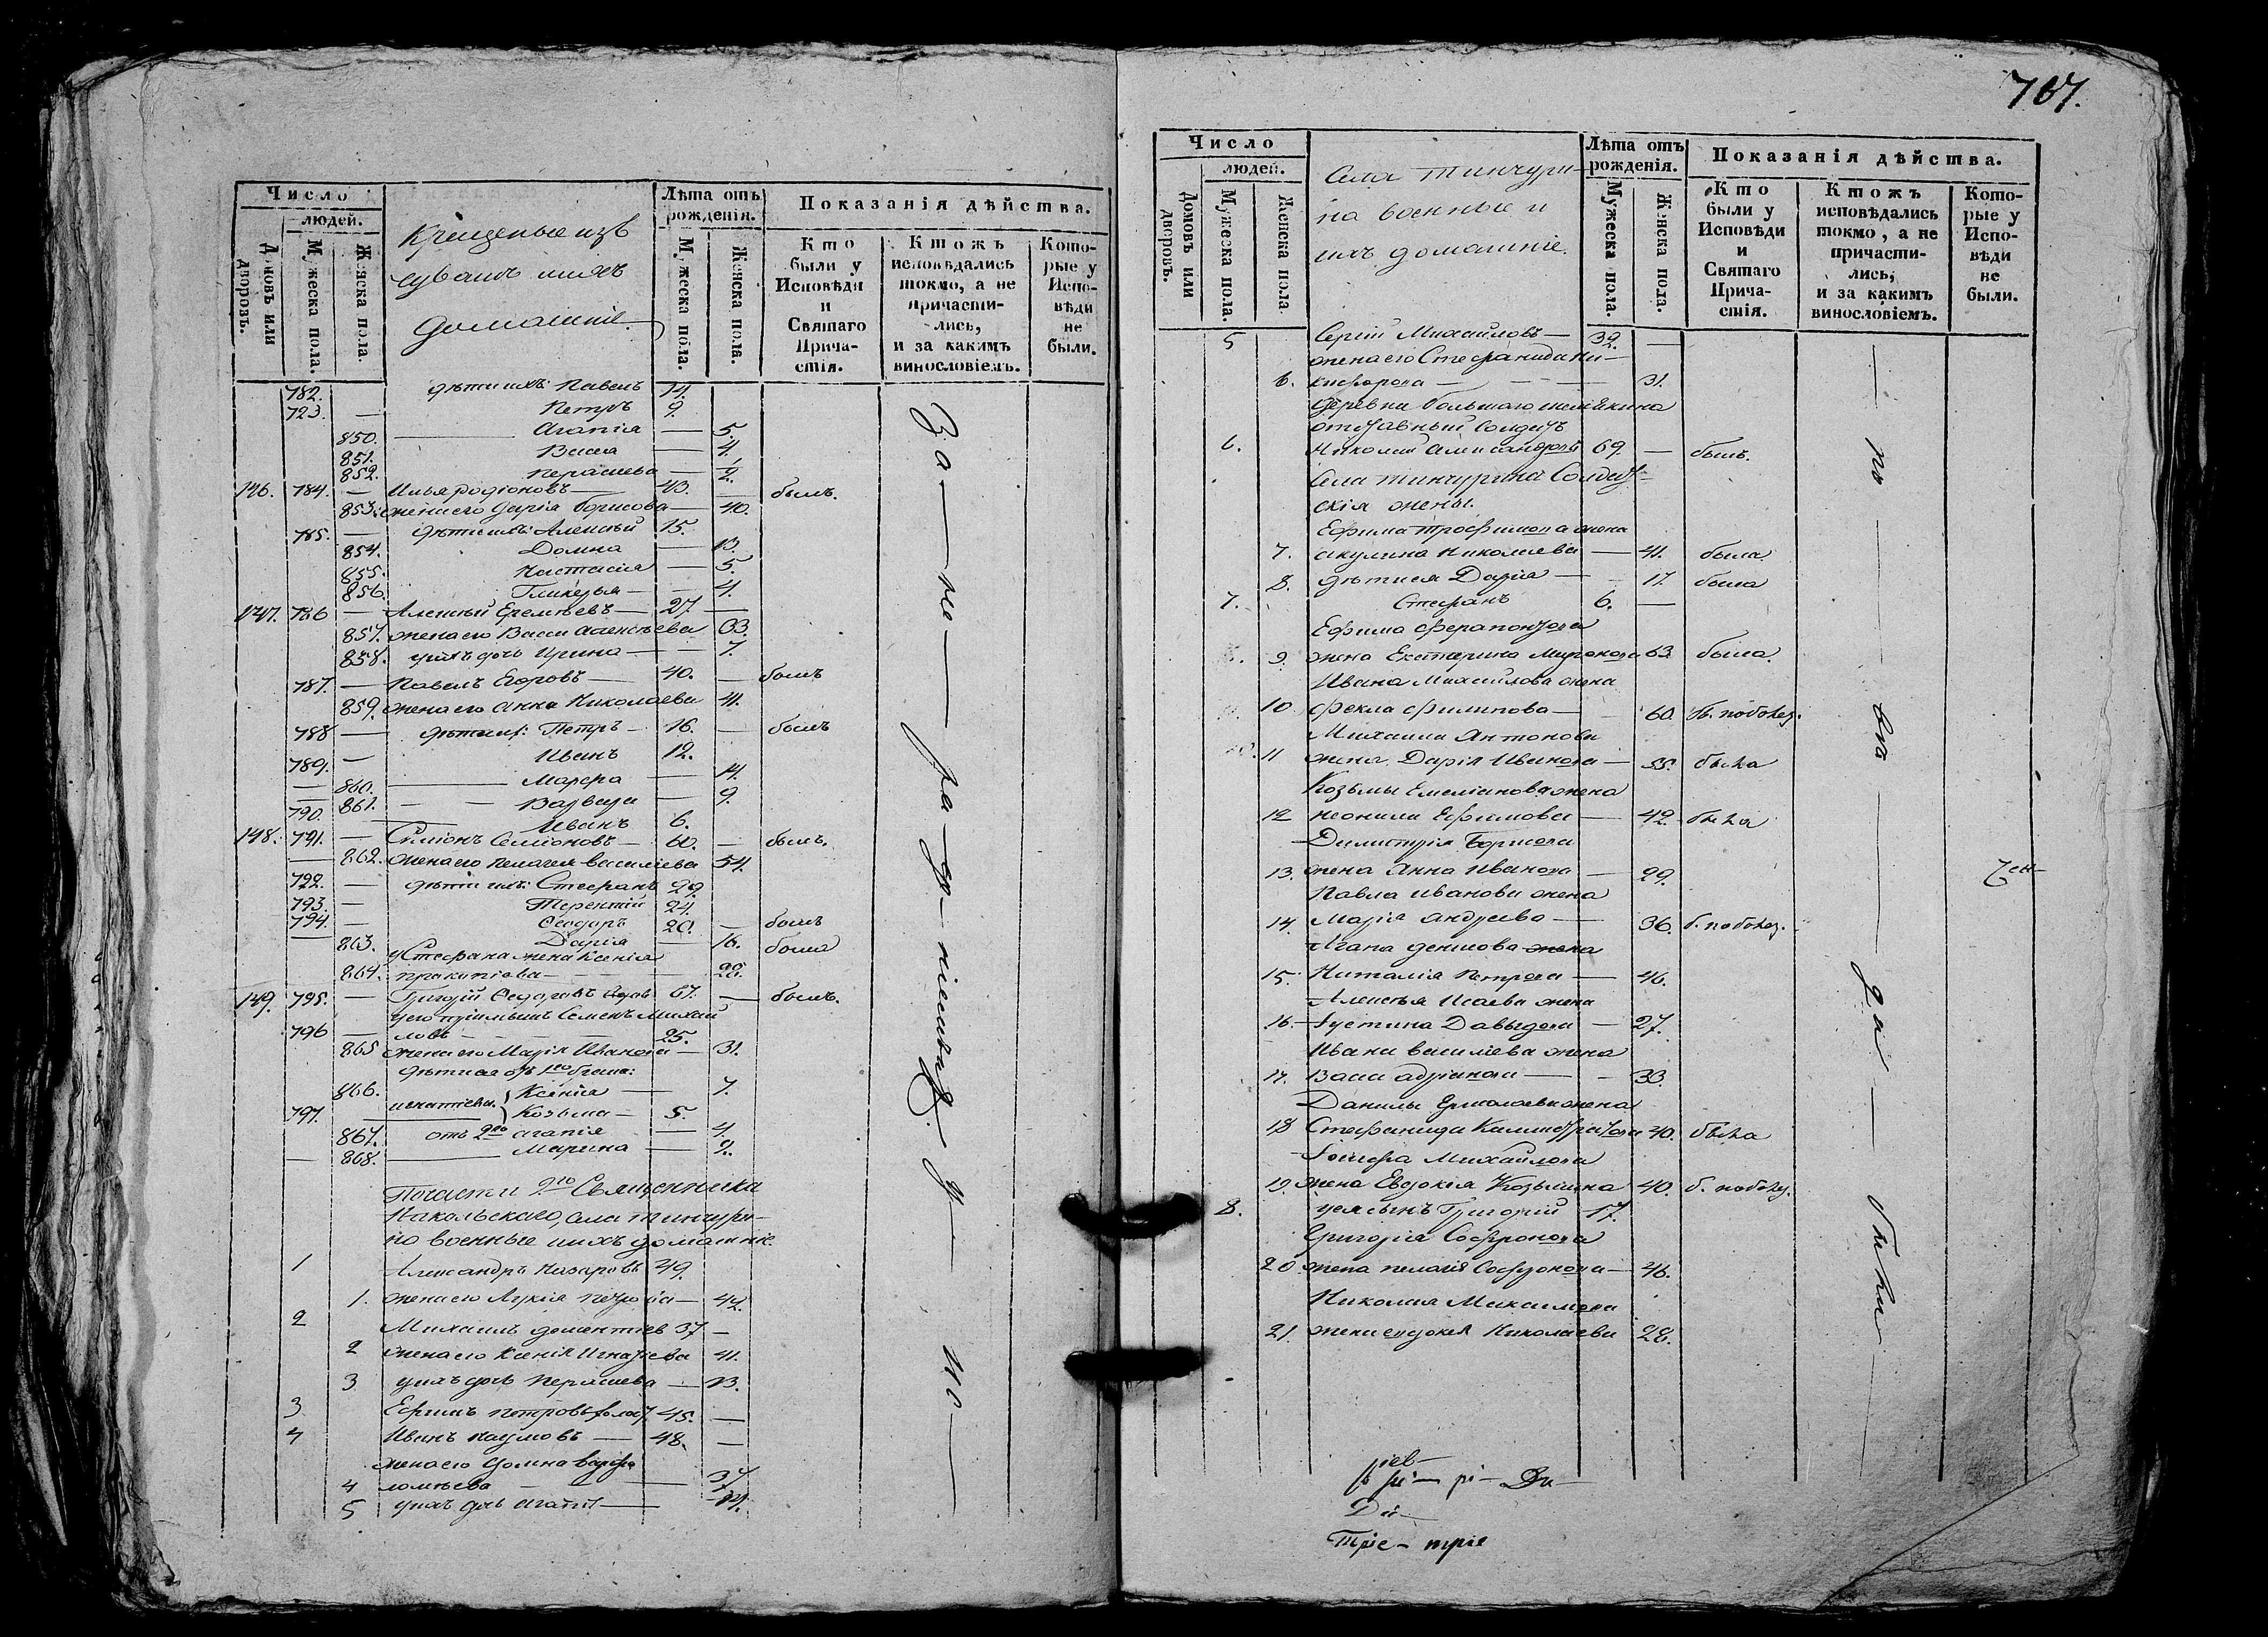 Число
людей.
Домовъ или дворовъ.
Мужеска пола.
Женска пола.
Крещеные изъ
чувашъ и ихъ
домашніе.
Лѣта отъ рожденія.
Мужеска пола.
Женска пола.
Показанія дѣйства.
Кто были у Исповѣди и Святаго Причастія.
Ктожъ исповѣдались токмо, а не причастились, и за какимъ винословіемъ.
Которые у Исповѣди не были.
782. дѣти ихъ: Павелъ 14.
723. — Петръ 9.
850. — Агапія — 5.
851. Васса — 4.
852. Параскева — 2.
146. 784. — Илья Родіоновъ — 43. — былъ.
853. жена его Дарія Борисова — 40.
785. — дѣти ихъ: Алексѣй 15.
854. Домна — 13.
855. Настасія — 5.
856. Гликерья — 4.
147. 786 — Алексѣй Еремѣевъ — 27. —
857. жена его Васса Алексѣева 33.
858. у нихъ дочь Ирина — 7.
787. — Павелъ Егоровъ — 40. — былъ
859. жена его Анна Николаева 41.
788 — дѣти ихъ: Петръ — 16. — былъ
789. — Иванъ 12.
860. — Марфа — 14.
861. — Варвара — 9.
790. Иванъ 6.
148. 791. — Симіонъ Семіоновъ — 60. — былъ.
862. жена его Пелагея Василіева 54.
792. — дѣти ихъ: Стефанъ 29.
793. — Терентій 24.
794. — Ѳеодоръ 20. — былъ
863. Дарія — 16. была
у Стефана жена Ксенія
864. Прокопіева — 28.
149. 795. — Григорій Ѳедоровъ вдовъ 67. — былъ.
у его пріимышъ Семенъ Михай
796 — ловъ — 25.
865 жена его Марія Иванова — 31.
дѣти ея отъ 1го брака:
866. Ксенія — 7.
797. Козьма — 5.
867. отъ 2го Агапія — 4.
868. — Марина — 2.
За — не — ра — дѣ — ніемъ
По части 2го Священника
Никольскаго, села Тинчури-
но военные и ихъ домашніе.
1 Александръ Назаровъ 49.
1. жена его Лукія Петрова — 42.
2 Михаилъ Дометіевъ 37 —
2 жена его Ксенія Игнатьева 41.
3 у нихъ дочь Параскева — 13.
3 Ефимъ Петровъ холост 45. —
4 Иванъ Наумовъ — 48. —
жена его Домна Варфо
4 ломѣева — 37.
5 у нихъ дочь Агапія — 14.
707.
Число
людей.
Домовъ или дворовъ.
Мужеска пола.
Женска пола.
Села Тинчури-
на военные и
ихъ домашніе.
Лѣта отъ рожденія.
Мужеска пола.
Женска пола.
Показанія дѣйства.
Кто были у Исповѣди и Святаго Причастія.
Ктожъ исповѣдались токмо, а не причастились, и за какимъ винословіемъ.
Которые у Исповѣди не были.
5 Сергій Михайловъ — 32. —
жена его Стефанида Ни-
6. кифорова — 31.
Деревни Большаго
отставный солдатъ
6. Николай Александровъ 69. — былъ.
Села Тинчурина Солдат-
скія жены.
Ефима Трофимова жена
7. Акулина Николаева — 41. была
8. дѣти ея Дарія — 17. была
7. Стефанъ 6. —
Ефима Ферапонтова
9. жена Екатерина Миронова 63. была.
Ивана Михайлова жена
10 Фекла Филипова — 60.
Михаила Антонова
11 жена Дарія Иванова — 55. была
Козьмы Емеліанова жена
12 Неонила Ефимова — 42. была
Димитрія Борисова
13. жена Анна Иванова — 29.
Павла Иванова жена
14. Марія Андреева — 36.
Денисова жена
15. Наталія Петрова — 46.
Алексѣя Исаева жена
16. Іустина Давыдова — 27.
Ивана Василіева жена
17. Васса Адріанова — 33.
Данилы Ермолаева жена
18 Стефанида 40. была
Іосифа Михайлова
19. жена Евдокія Козьмина 40.
8. у ея сынъ Григорій 17.
Григорія Софронова
20 жена Пелагія Софронова — 46.
Николая Максимова
21. жена Евдокія Николаева 28.
Тріе — тріе